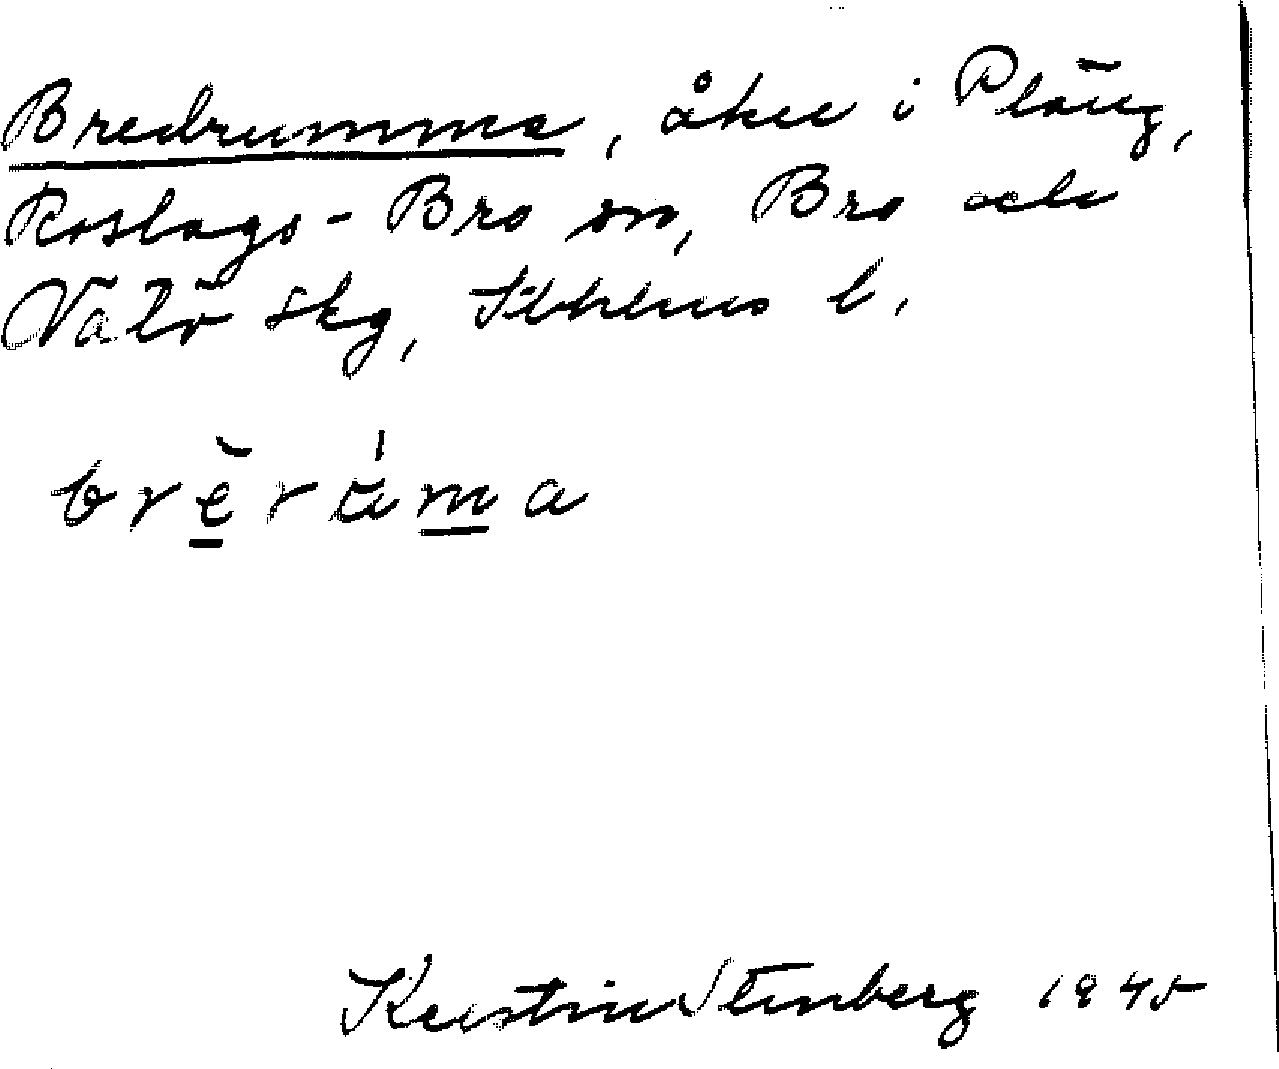 Bredrumma, åker i Pläng,
Roslags-Bro sn, Bro och
Vätö skg, Sthlms l.
brèrúma
Kerstin Stenberg 1945